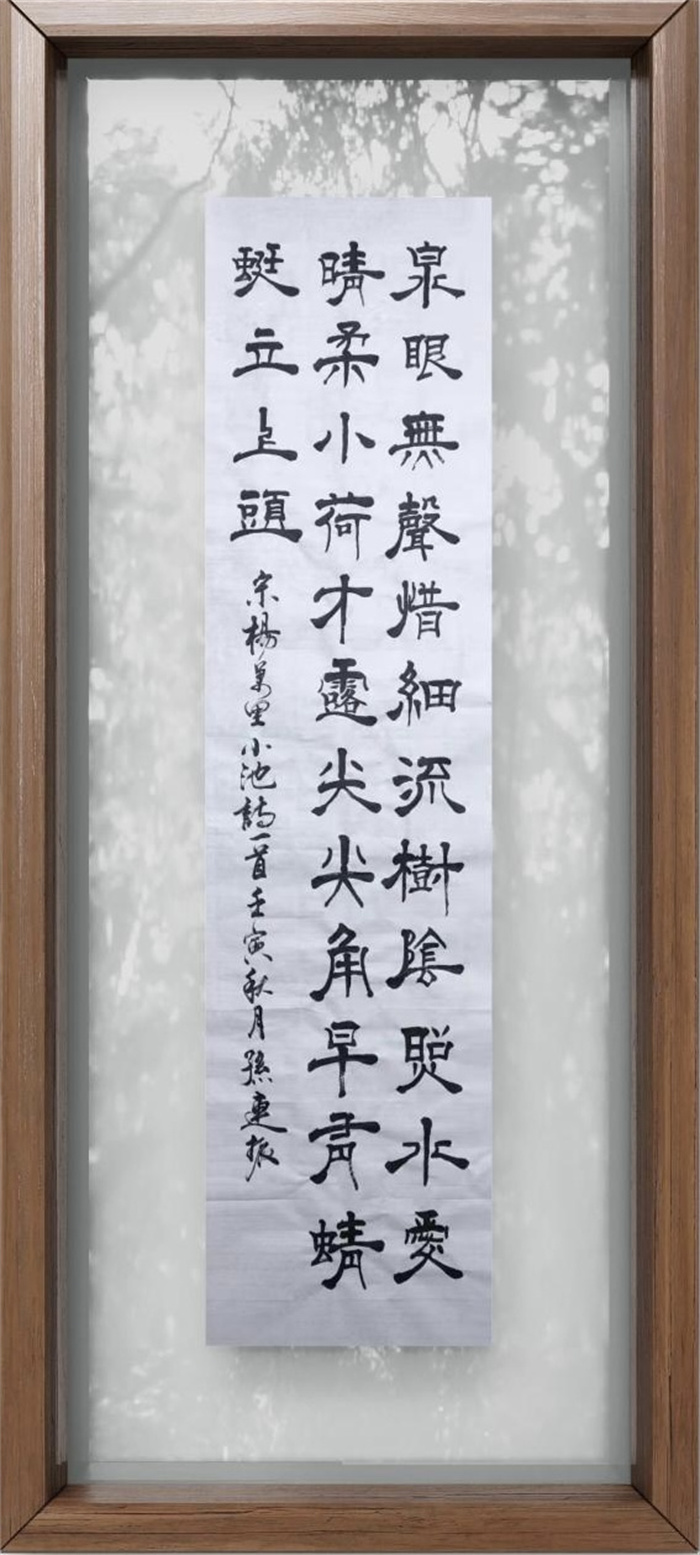 泉眼無聲惜細流樹陰照水愛
晴柔小荷才露尖尖角早有蜻
蜓立上頭
宋楊萬里小池詩一首壬寅秋月孫連振